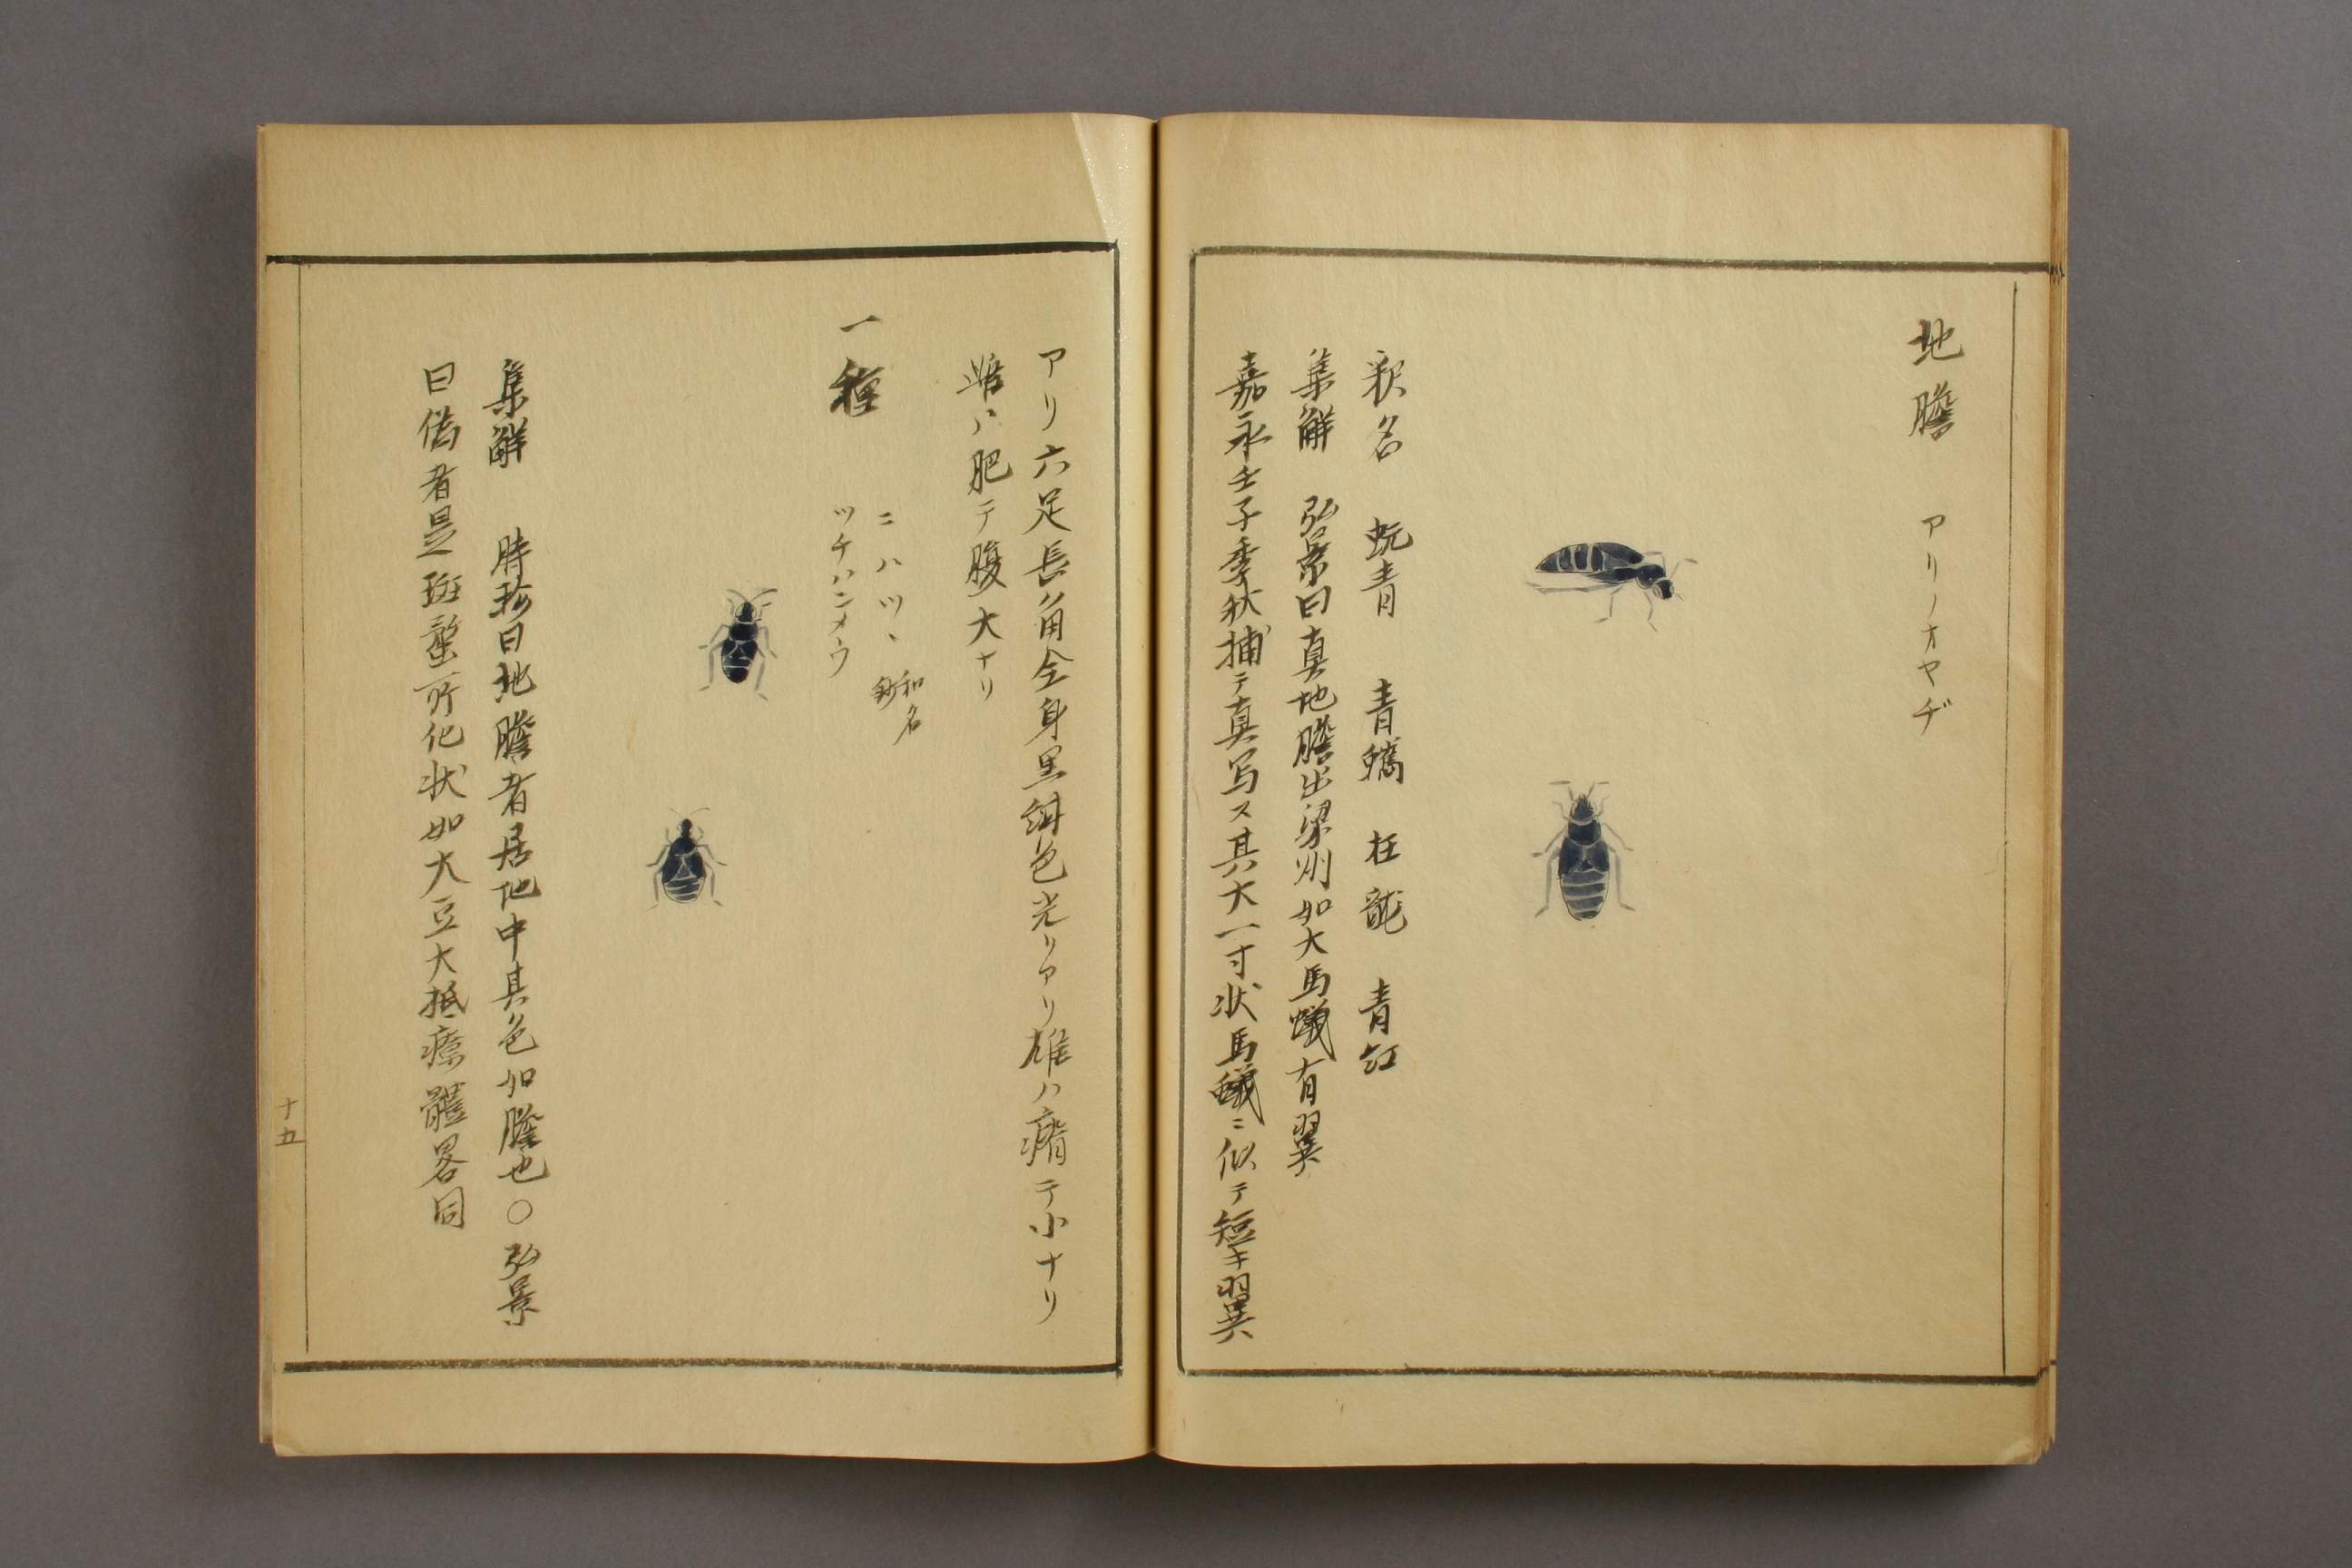 地膽 アリノオヤヂ
釈名 蚖青 青蠵 杜龍 青虹
集解 弘景曰真地膽出梁州如大馬蟻有翼
嘉永壬子季秋捕テ真写ス其大一寸状馬蟻ニ似テ短キ翼
アリ六足長ノ角全身黒紺色光リアリ雄ハ瘠テ小ナリ
雌ハ肥テ腹大ナリ
一種 ニハツヽ 和名鈔
ツチハンメウ
集解 時珍曰地膽者居地中其色如膽也〇弘景
曰偽者是斑蝥所化状如大豆大抵療體畧同
十五